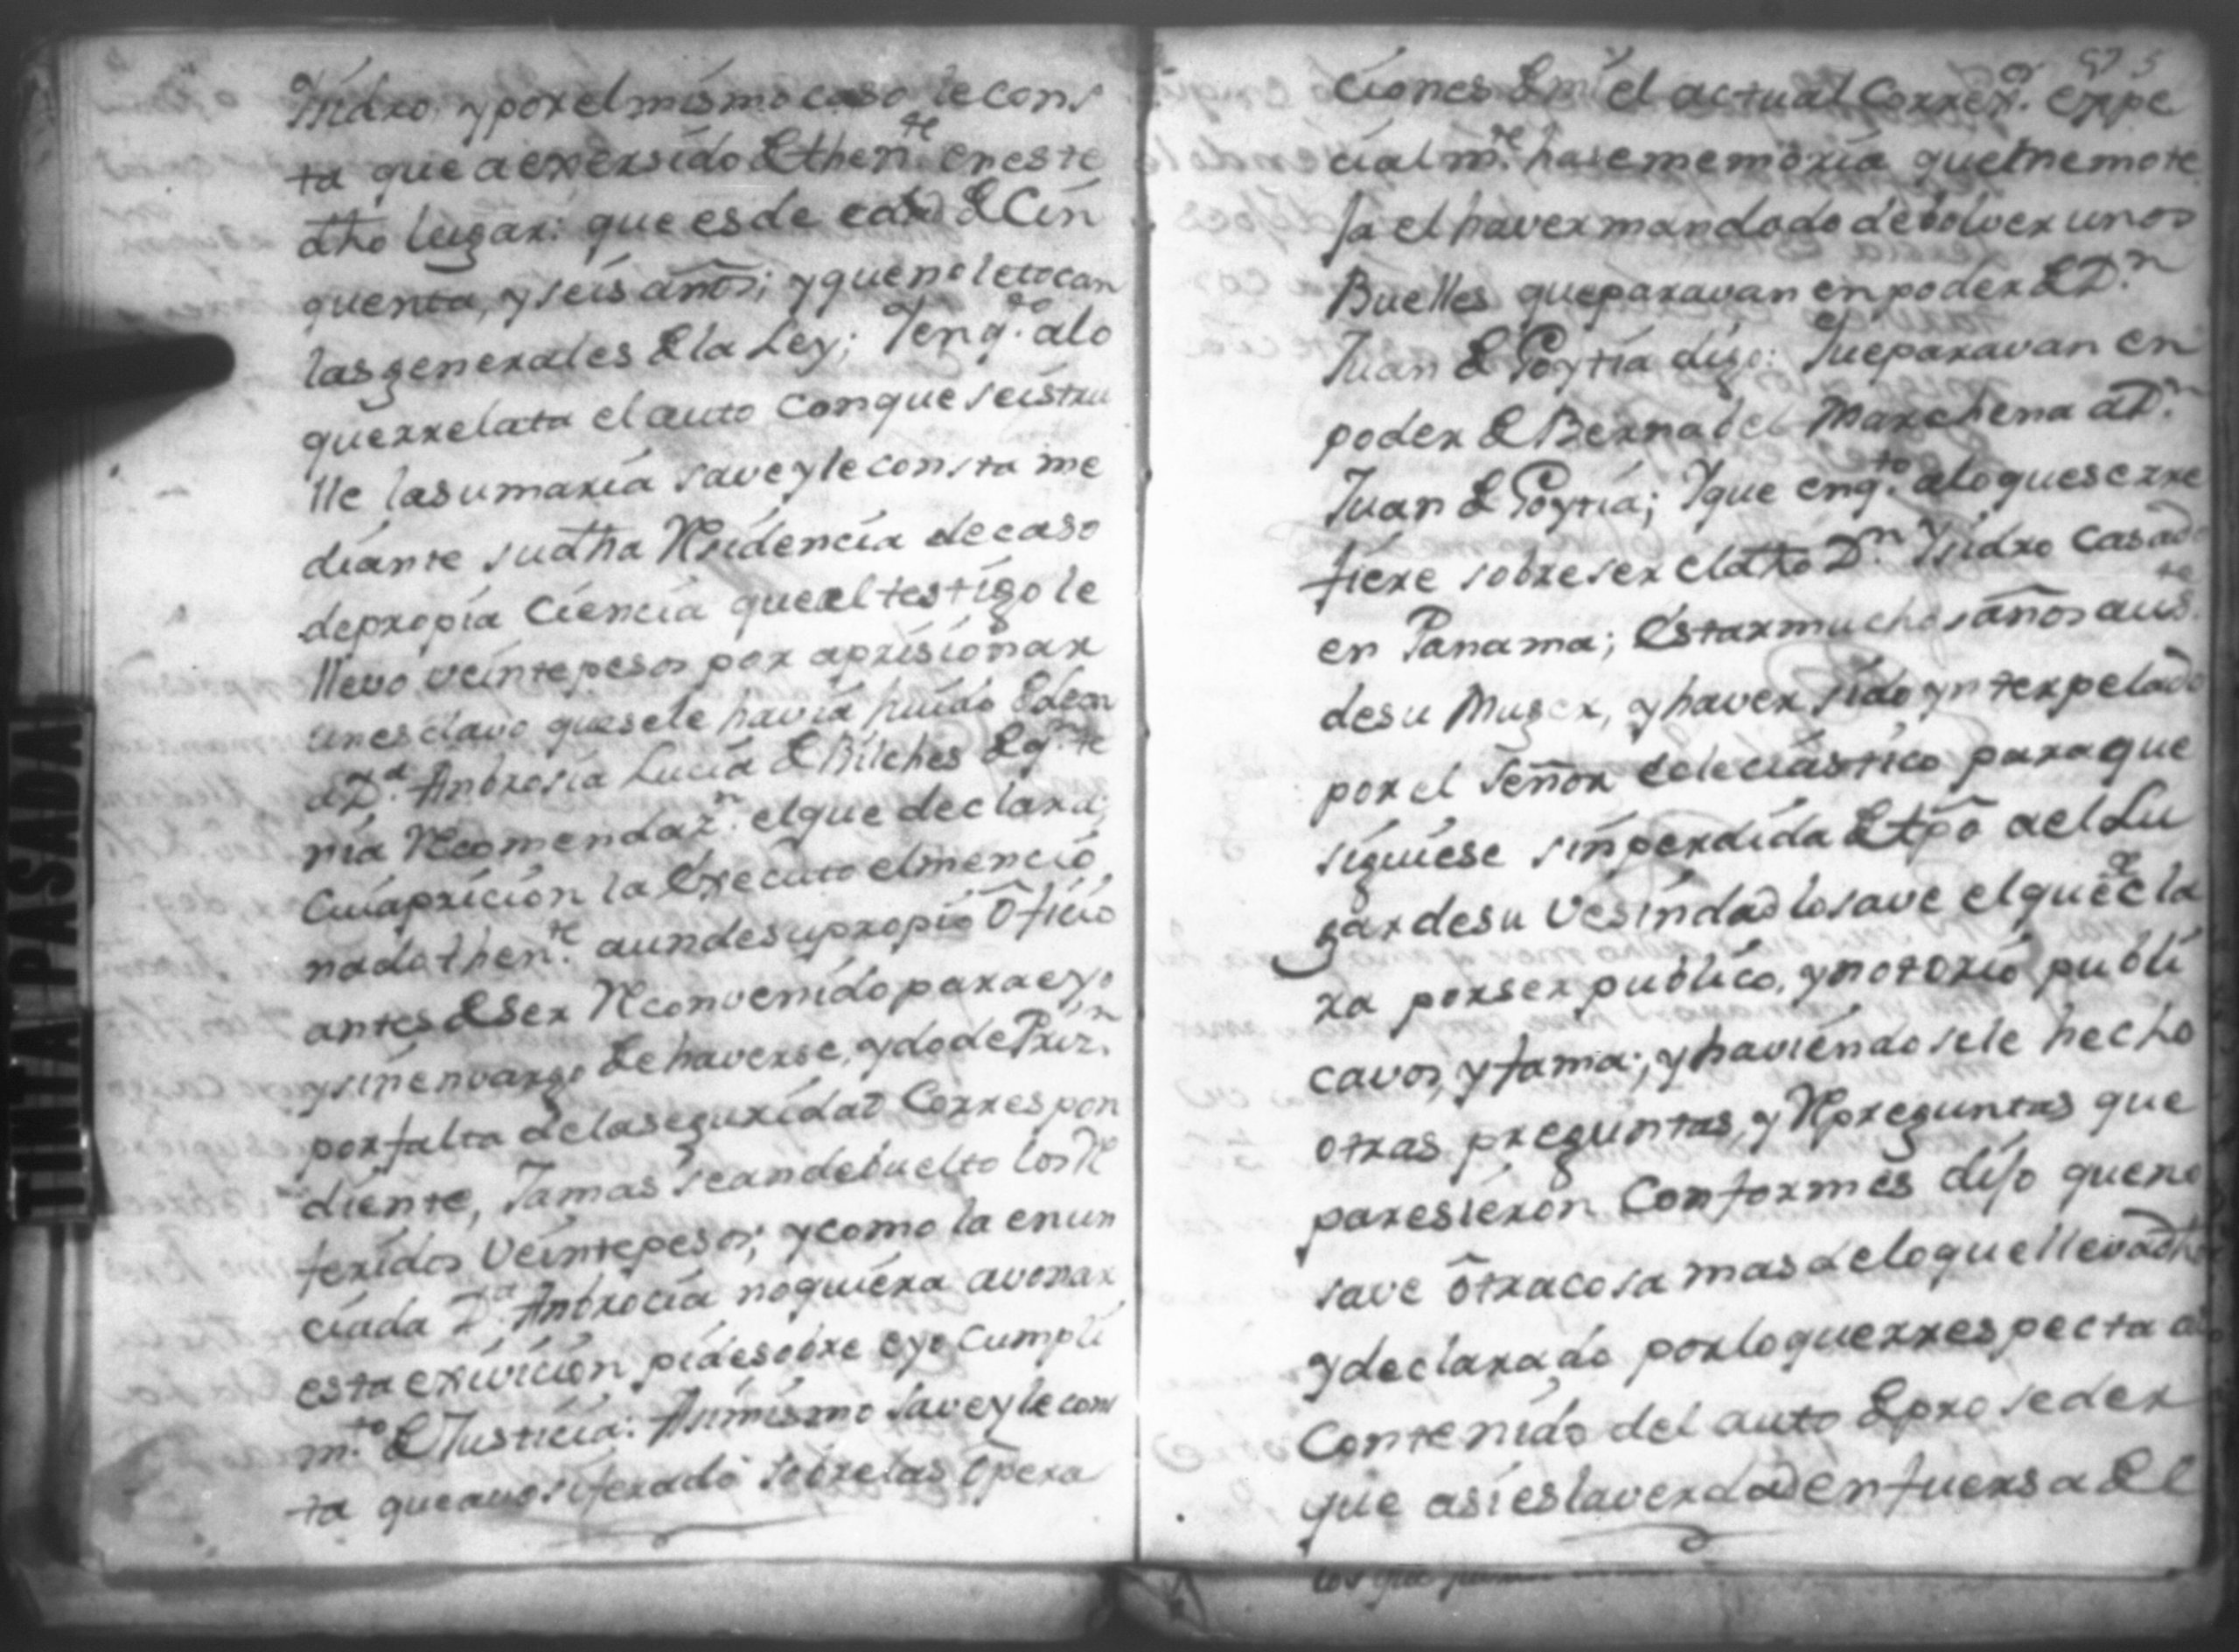 Ysidro, y por el mismo caso le cons
ta que a exersido de then.te en este
dho lugar: que es de edad de Cin
quenta, y seis años; y que no le tocan
las generales de la Ley; Y en q.to a lo
que rrelata el auto con que se istru
lle la sumaria save y le consta me
diante su dha Residencia de caso
de propia Ciencia que al testigo le
llevo veinte pesos por aprisionar
un esclavo que se le havia huido
a D.a Ambrosia Lucia de Bilches
nia Recomendaz.n el que declara;
Cuia pricion la Executo el mencio
nado then.te aun de su propio Oficio
antes de ser Reconvenido para eyo
y sin envargo de haverse, ydo de Priz.n
por falta de la seguridad Correspon
diente, Jamas se an debuelto los Re
feridos Veinte pesos; y como la enun
ciada D.a Ambrocia no quiera avonar
esta exivicion pide sobre eyo Cumpli
m.to de Justicia: Asimismo save y le cons
ta que a vosiferado sobre las Opera
ciones de mi el actual Correx.or expe
cialm.te hase memoria que me mote
ja el haver mandado debolver unos
Buelles que paravan en poder de D.n
Juan de Goytia digo: Que paravan en
poder de Bernabel Marchena a D.n
Juan de Goytia; Y que en q.to a lo que se rre
fiere sobre ser el dho D.n Ysidro Casado
en Panama; Estar muchos años aus.te
de su Muger, y haver sido ynterpelado
por el Señor Ecleciastico para que
siguiese sin perdida de tpo a el Lu
gar de su Vesindad lo save el que decla
ra por ser publico, y notorio publi
cavos, y fama; y haviendosele hecho
otras preguntas, y Repreguntas que
paresieron Conformes dijo que no
save otra cosa mas de lo que lleva dho
y declarado por lo que rrespecta al
Contenido del auto de proseder
que asi es la verdad en fuersa del
los que